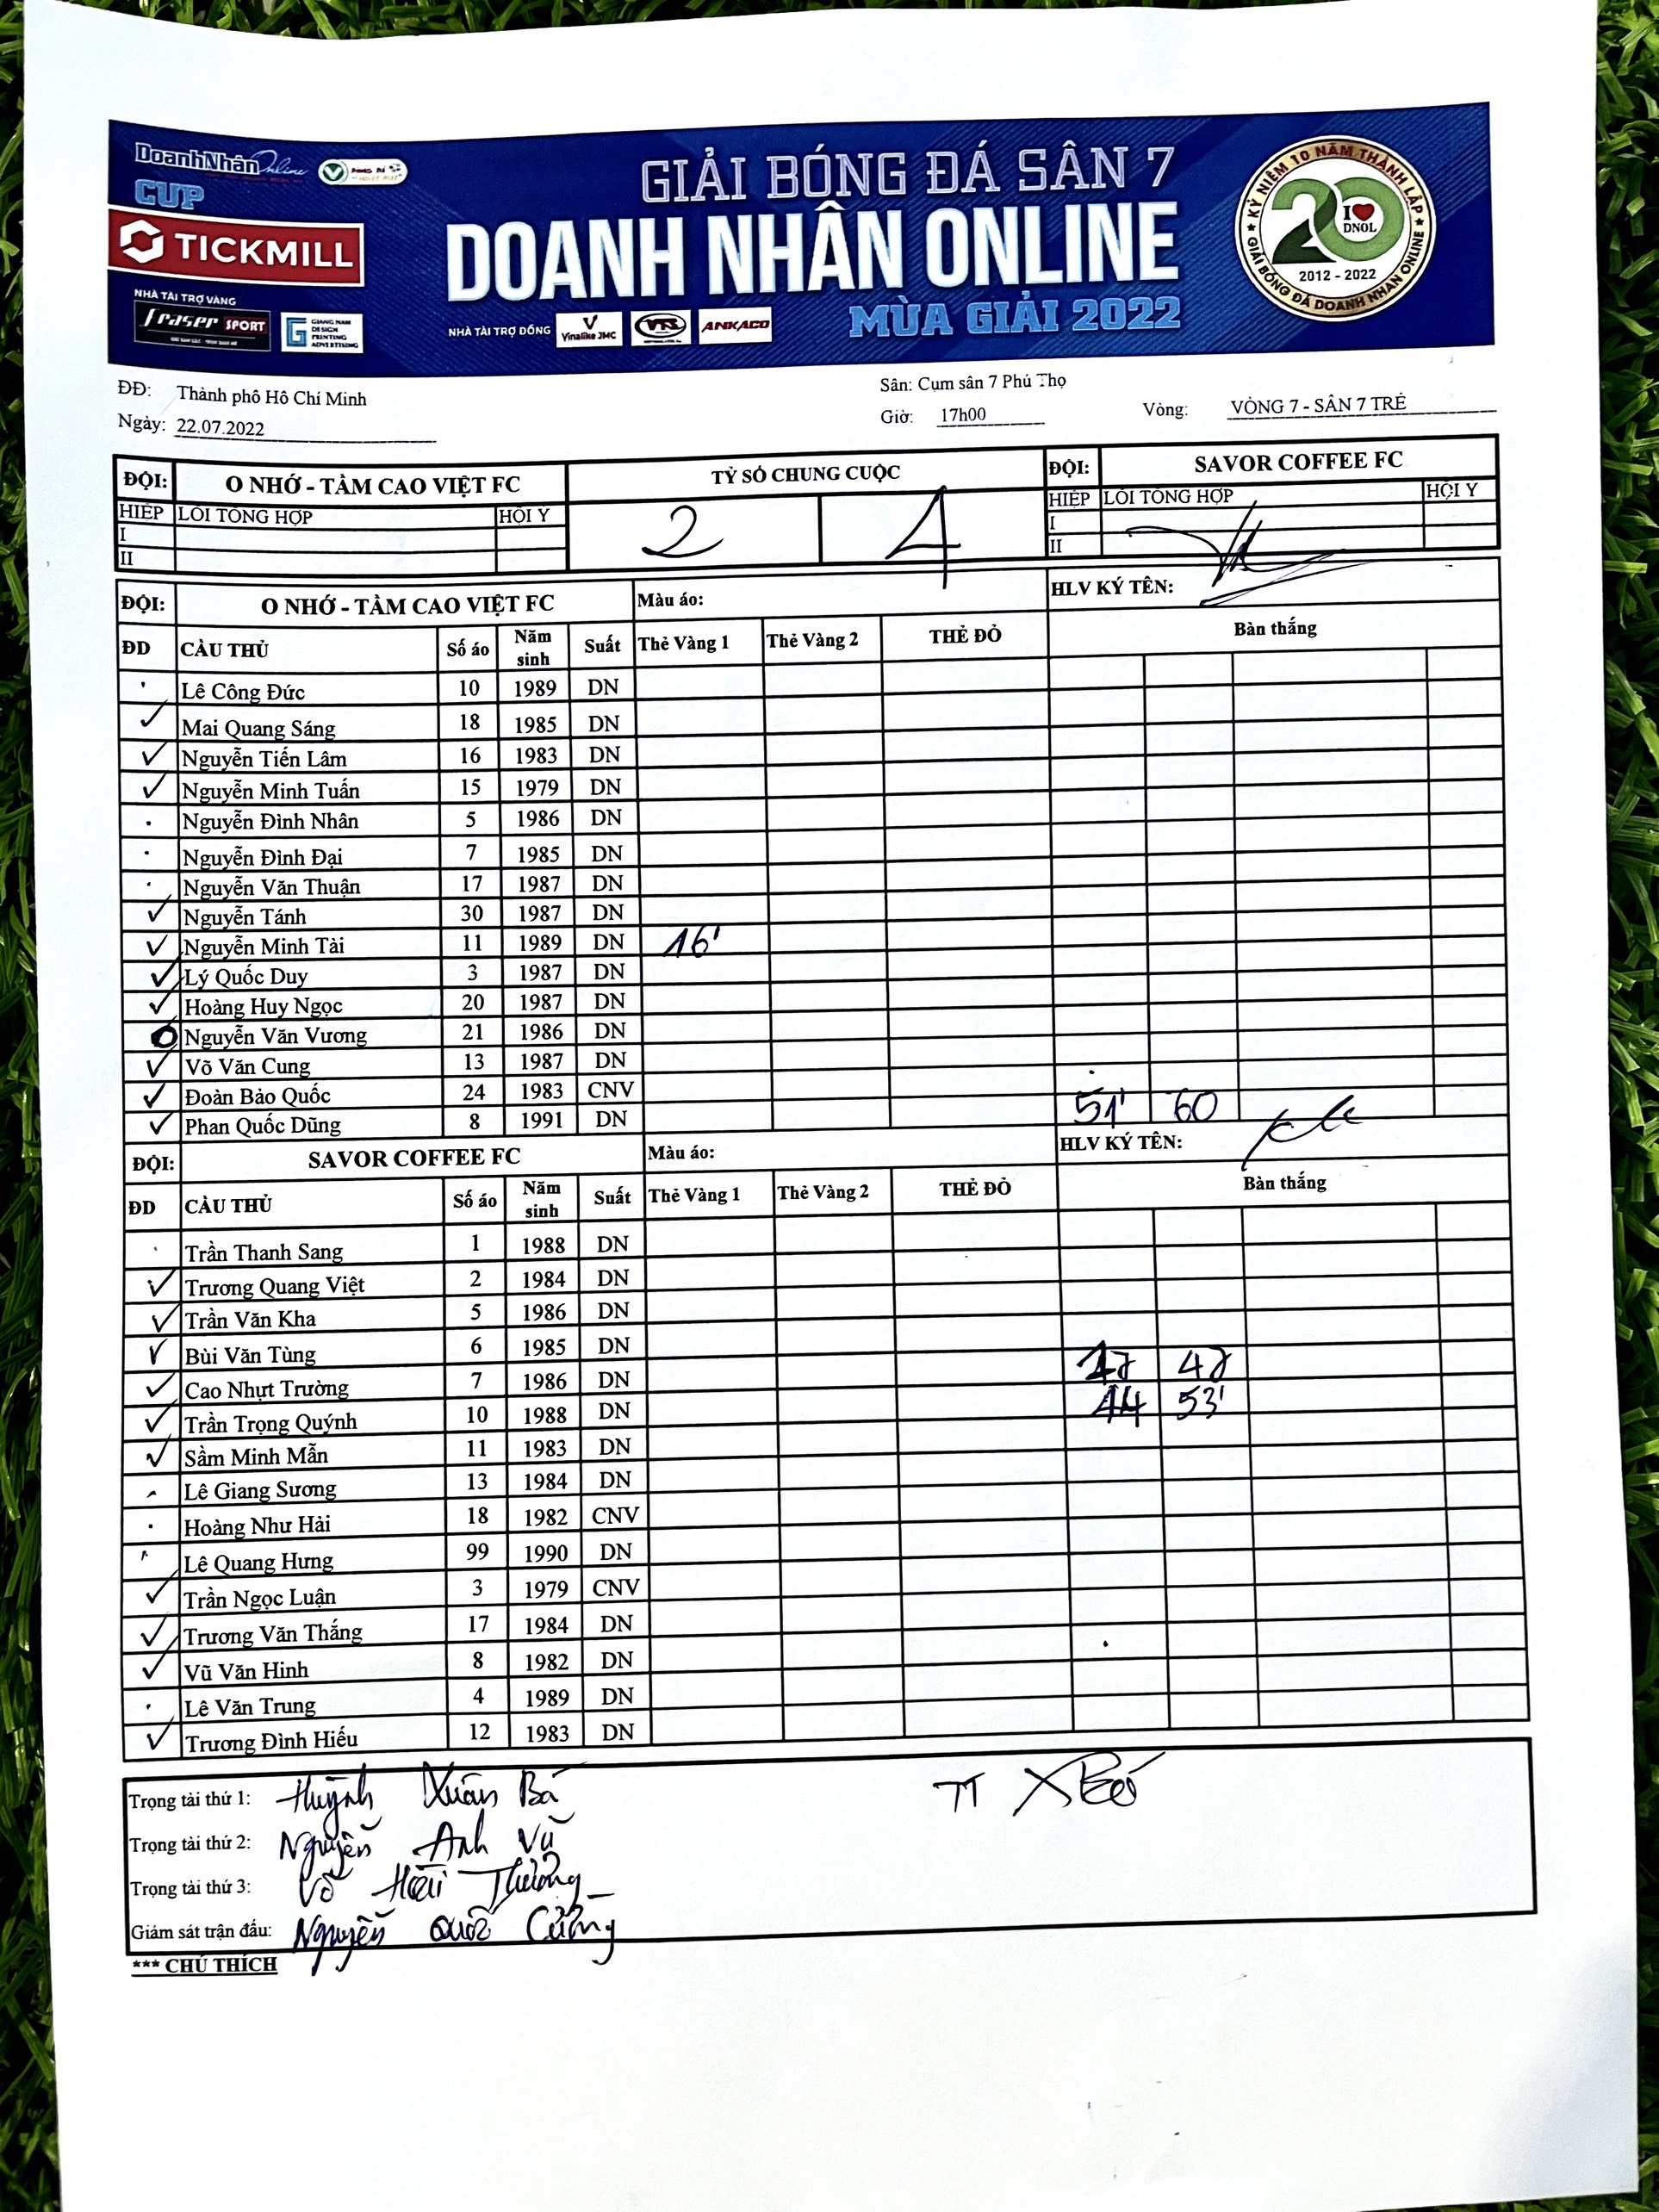 DoanhNhân Online
CUP
TICKMILL
NHÀ TÀI TRỢ VÀNG
fraser SPORT
GIANG NAM
DESIGN
PRINTING
ADVERTISING
GIẢI BÓNG ĐÁ SÂN 7
DOANH NHÂN ONLINE
MÙA GIẢI 2022
NHÀ TÀI TRỢ ĐỒNG
Vinalike JMC
ANKACO
KỶ NIỆM 10 NĂM THÀNH LẬP
20
I ❤ DNOL
2012 - 2022
GIẢI BÓNG ĐÁ DOANH NHÂN ONLINE
ĐĐ: Thành phố Hồ Chí Minh Sân: Cụm sân 7 Phú Thọ
Ngày: 22.07.2022 Giờ: 17h00 Vòng: VÒNG 7 - SÂN 7 TRẺ
ĐỘI: O NHỚ - TẦM CAO VIỆT FC TỶ SỐ CHUNG CUỘC ĐỘI: SAVOR COFFEE FC
HIỆP LỖI TỔNG HỢP HỘI Ý 2 4 HIỆP LỖI TỔNG HỢP HỘI Ý
I I
II II
ĐỘI: O NHỚ - TẦM CAO VIỆT FC Màu áo: HLV KÝ TÊN:
ĐD CẦU THỦ Số áo Năm sinh Suất Thẻ Vàng 1 Thẻ Vàng 2 THẺ ĐỎ Bàn thắng
Lê Công Đức 10 1989 DN
✓ Mai Quang Sáng 18 1985 DN
✓ Nguyễn Tiến Lâm 16 1983 DN
✓ Nguyễn Minh Tuấn 15 1979 DN
Nguyễn Đình Nhân 5 1986 DN
Nguyễn Đình Đại 7 1985 DN
Nguyễn Văn Thuận 17 1987 DN
✓ Nguyễn Tánh 30 1987 DN
✓ Nguyễn Minh Tài 11 1989 DN 16'
✓ Lý Quốc Duy 3 1987 DN
✓ Hoàng Huy Ngọc 20 1987 DN
Nguyễn Văn Vương 21 1986 DN
✓ Võ Văn Cung 13 1987 DN
✓ Đoàn Bảo Quốc 24 1983 CNV
✓ Phan Quốc Dũng 8 1991 DN 51' 60
ĐỘI: SAVOR COFFEE FC Màu áo: HLV KÝ TÊN:
ĐD CẦU THỦ Số áo Năm sinh Suất Thẻ Vàng 1 Thẻ Vàng 2 THẺ ĐỎ Bàn thắng
Trần Thanh Sang 1 1988 DN
✓ Trương Quang Việt 2 1984 DN
✓ Trần Văn Kha 5 1986 DN
✓ Bùi Văn Tùng 6 1985 DN
✓ Cao Nhựt Trường 7 1986 DN
✓ Trần Trọng Quýnh 10 1988 DN 44 53'
✓ Sầm Minh Mẫn 11 1983 DN
Lê Giang Sương 13 1984 DN
Hoàng Như Hải 18 1982 CNV
Lê Quang Hưng 99 1990 DN
✓ Trần Ngọc Luận 3 1979 CNV
✓ Trương Văn Thắng 17 1984 DN
✓ Vũ Văn Hinh 8 1982 DN
Lê Văn Trung 4 1989 DN
✓ Trương Đình Hiếu 12 1983 DN
Trọng tài thứ 1: Huỳnh Xuân Bá TT
Trọng tài thứ 2: Nguyễn Anh Vũ
Trọng tài thứ 3: Võ Hoài Thương
Giám sát trận đấu: Nguyễn Quốc Cường
*** CHÚ THÍCH